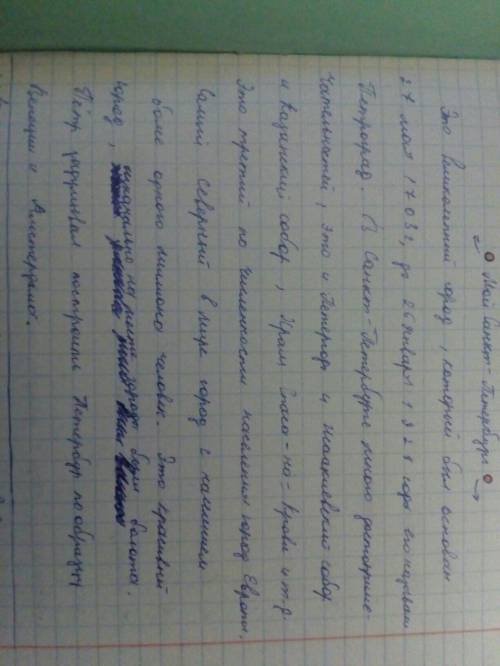 Мой Санкт-Петербург
Это великолепный город, который был основан
27 мая 1703 г, до 26 января 1928 года его называли
Петроград. В Санкт-Петербурге много достоприме-
чательностей, это и Петергоф и Исаакиевский собор
и Казанский собор, Храм Спаса-на-Крови и т.д.
Это третий по численности населения город Европы.
Самый Северный в мире город с населением
более одного миллиона человек. Это красивый
город, изначально на месте города были болота.
Пётр задумывал построить Петербург по образцу
Венеции и Амстердама.